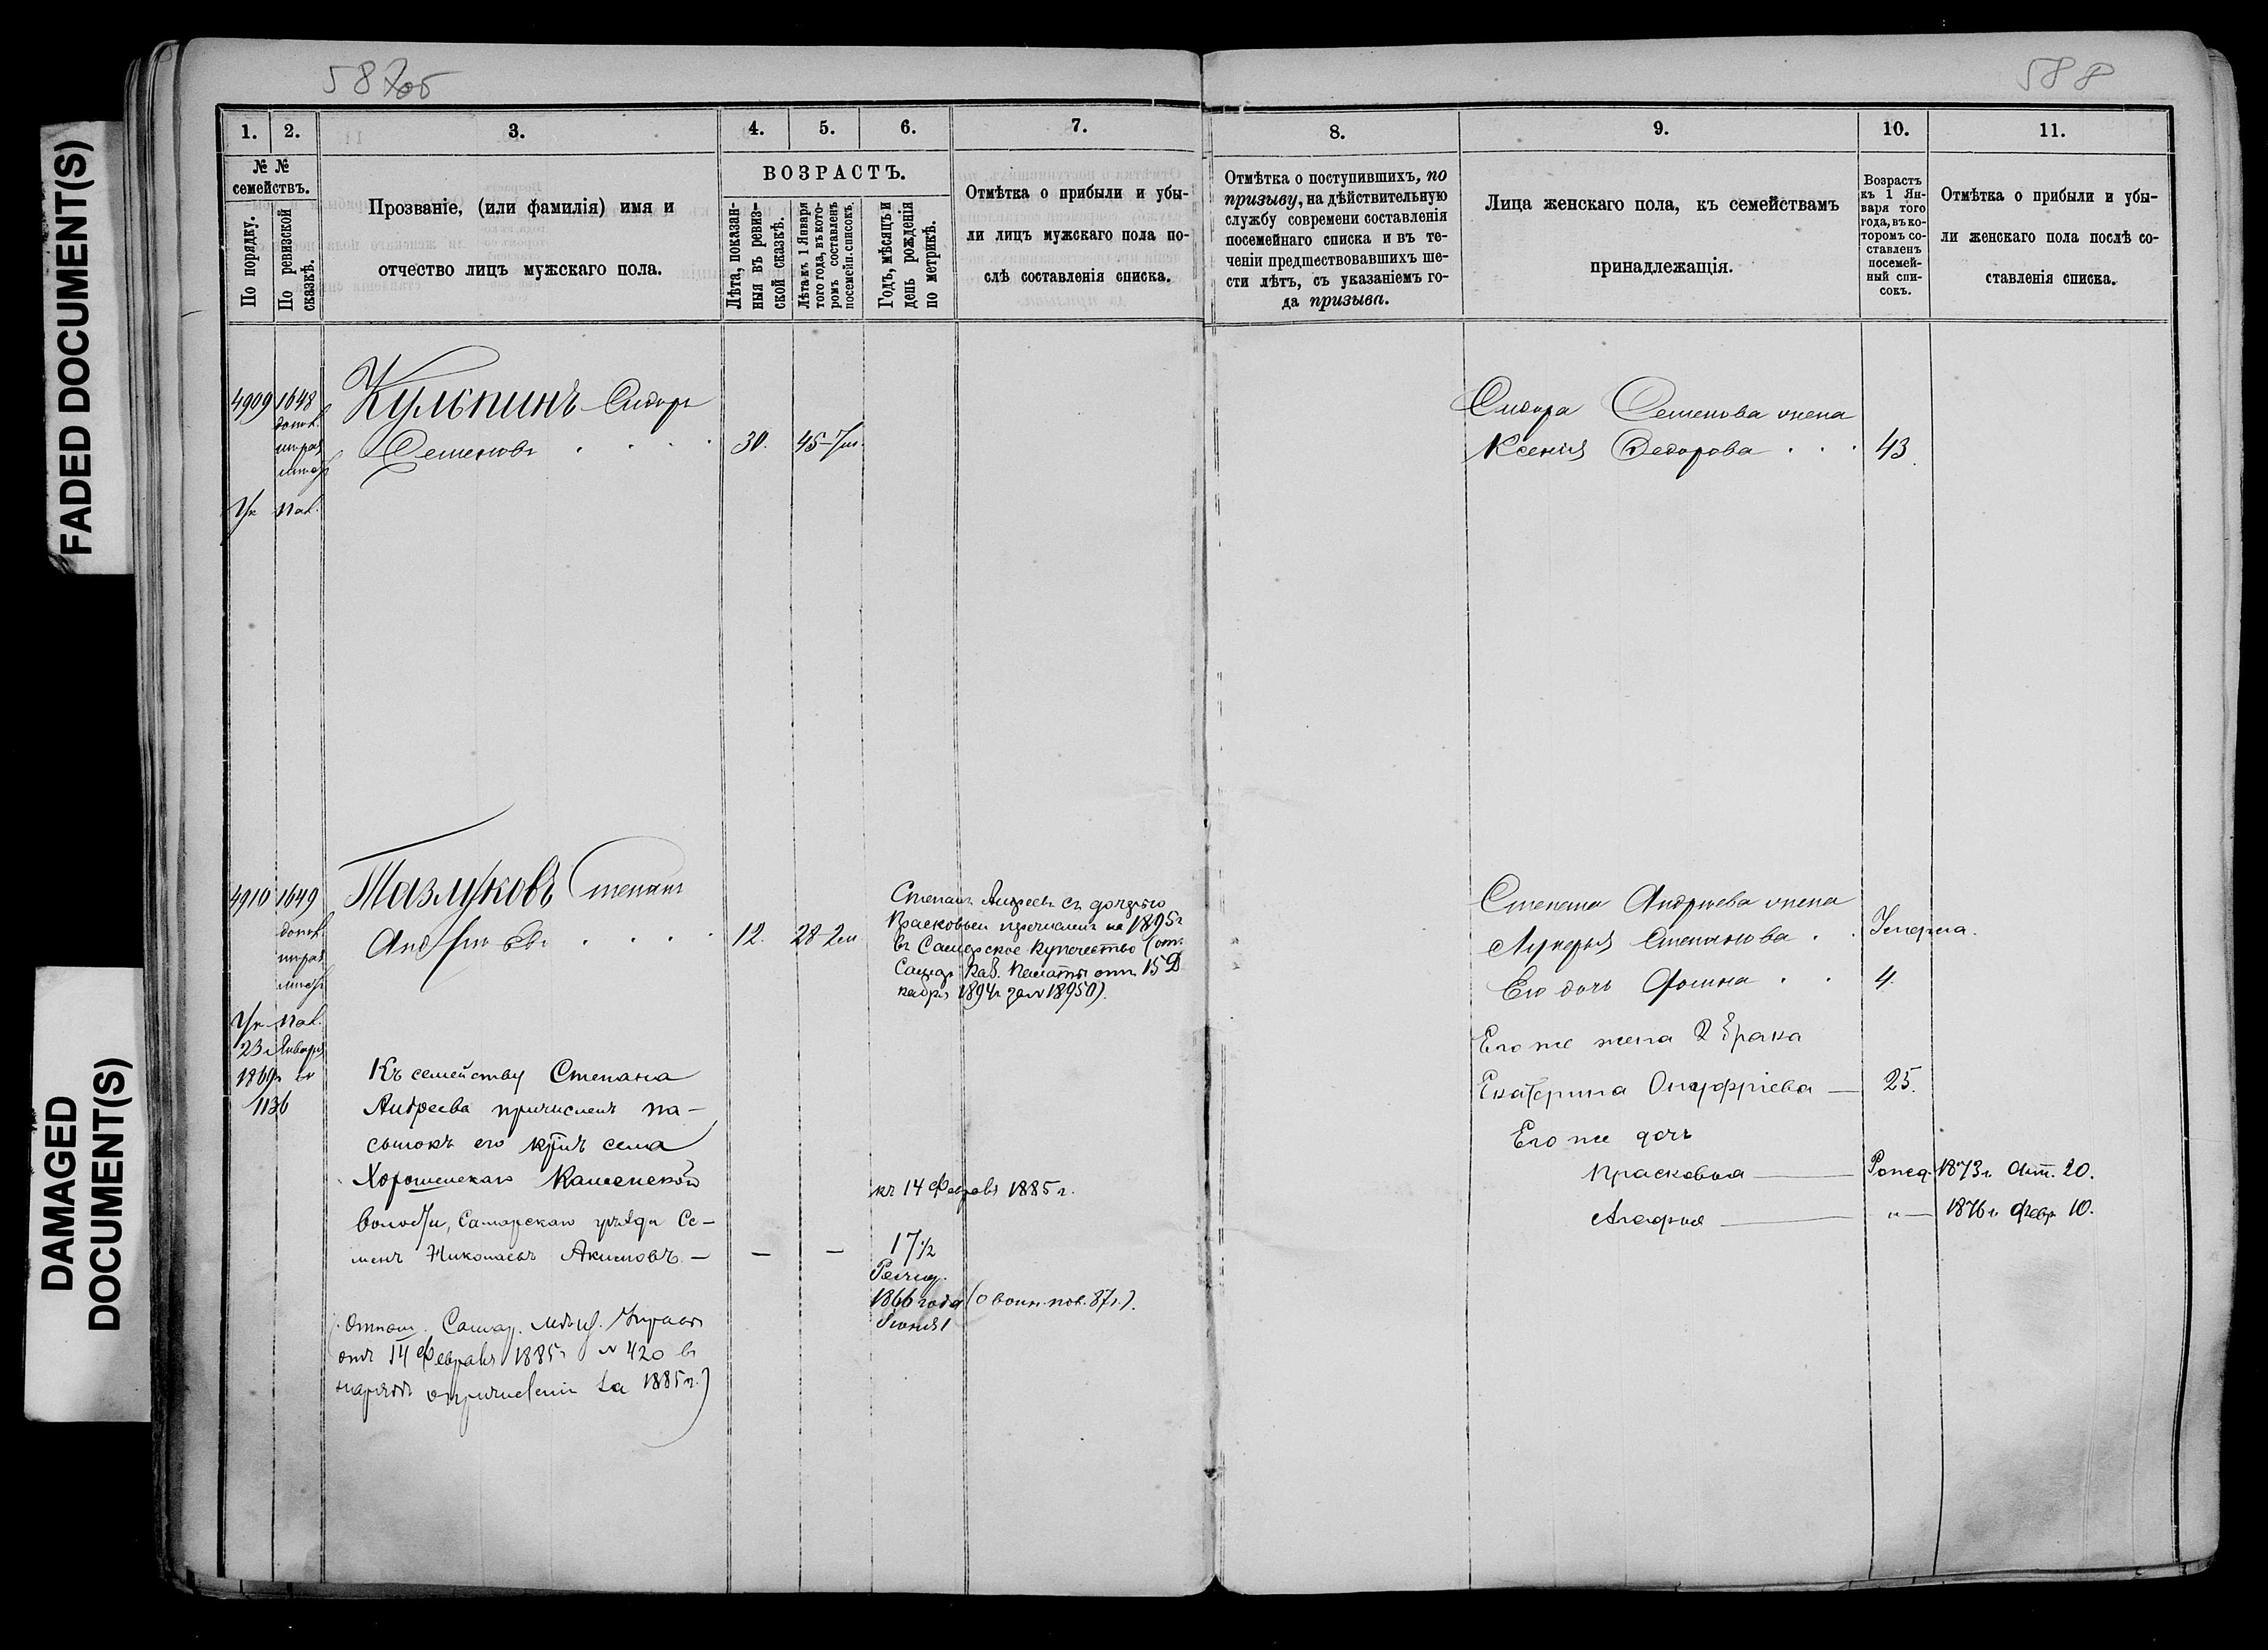 FADED DOCUMENT(S)
DAMAGED
DOCUMENT(S)
587об
588
1.
2.
3.
4.
5.
6.
7.
№ №
семействъ.
По порядку.
По ревизской
сказкѣ.
Прозваніе, (или фамилія) имя и
отчество лицъ мужскаго пола.
ВОЗРАСТЪ.
Лѣта, показан-
ныя въ ревиз-
ской сказкѣ.
Лѣта къ 1 Января
того года, въ кото-
ромъ составленъ
посемейн. списокъ.
Годъ, мѣсяцъ и
день рожденія
по метрикѣ.
Отмѣтка о прибыли и убы-
ли лицъ мужскаго пола по-
слѣ составленія списка.
8.
9.
10.
11.
Отмѣтка о поступившихъ, по
призыву, на дѣйствительную
службу современи составленія
посемейнаго списка и въ те-
ченіи предшествовавшихъ ше-
сти лѣтъ, съ указаніемъ го-
да призыва.
Лица женскаго пола, къ семействамъ
принадлежащія.
Возрастъ
къ 1 Ян-
варя того
года, въ ко-
торомъ со-
ставленъ
посемей-
ный спи-
сокъ.
Отмѣтка о прибыли и убы-
ли женскаго пола послѣ со-
ставленія списка.
4909 1648
Кульпинъ Сидоръ
Семеновъ 30. 45
Сидора Семенова жена
Ксенія Федорова 43
4910 1649
Тазлуковъ Степанъ
Андреевъ 12. 28
Степанъ Андреевъ съ дочерью
Прасковьей перечисленъ на 1895 г
въ Самарское купечество (от.
Самар. Каз. Палаты отъ 15 Д
кабря 1894 г за № 18950).
23 Января
1869 г
1136
Къ семейству Степана
Андреева причисленъ па-
сынокъ его кр̃нъ села
Каменской
волости, Самарскаго уѣзда Се-
менъ Николаевъ Акимовъ —
— —
къ 14 Февраля 1885 г.
17 1/2
1866 года (о воин. пов. 87 г.).
Самар. Мѣщ. Управы
отъ 14 Февраля 1885 г № 420 въ
нарядѣ о причисленіи за 1885 г.)
Степана Андреева жена
Лукерья Степанова Умерла.
Его дочь Фоина 4.
Его же жена 2 брака
Екатерина Онуфріева — 25.
Его же дочь
Прасковья — Рожд. 1873 г. Окт. 20.
Агафія — „ — 1876 г. Февр. 10.